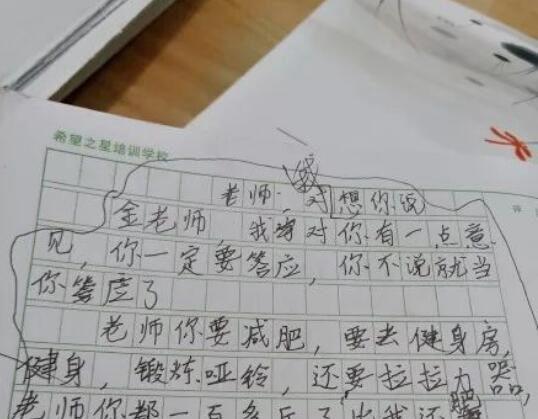 希望之星培训学校
老师,我想你说
金老师 我对你有一点意
见,你一定要答应,你不说就当
你答应了
老师你要减肥,要去健身房,
健身,锻炼哑铃,还要拉拉力器,
老师你都一百多斤了比我还